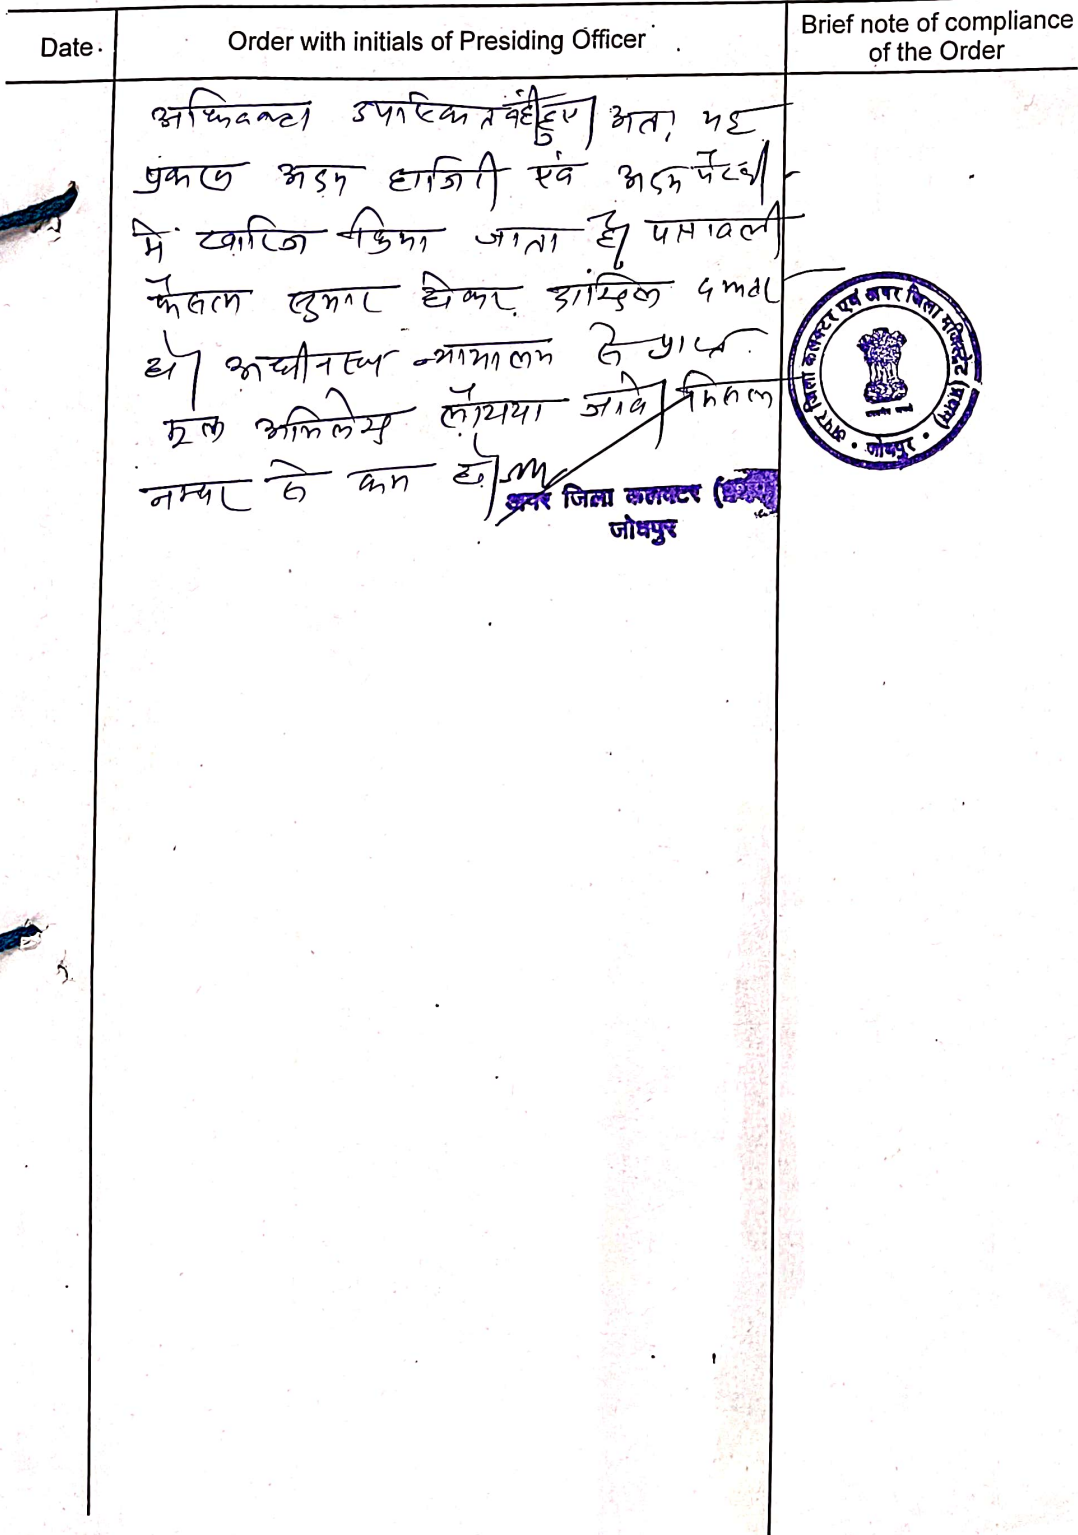 Date
Order with initials of Presiding Officer
Brief note of compliance
of the Order
अधिवक्ता उपस्थित नहीं हुए। अतः यह
प्रकरण अदम हाजिरी एवं अदम पैरवी
में खारिज किया जाता है। पत्रावली
फैसल शुमार होकर दाखिल दफ्तर
हो। अधीनस्थ न्यायालय से प्राप्त
मूल अभिलेख लौटाया जावे। मिसल
नम्बर से कम हो।
अपर जिला कलक्टर (प्रथम)
जोधपुर
अपर जिला कलक्टर एवं अपर जिला मजिस्ट्रेट (प्रथम)
जोधपुर